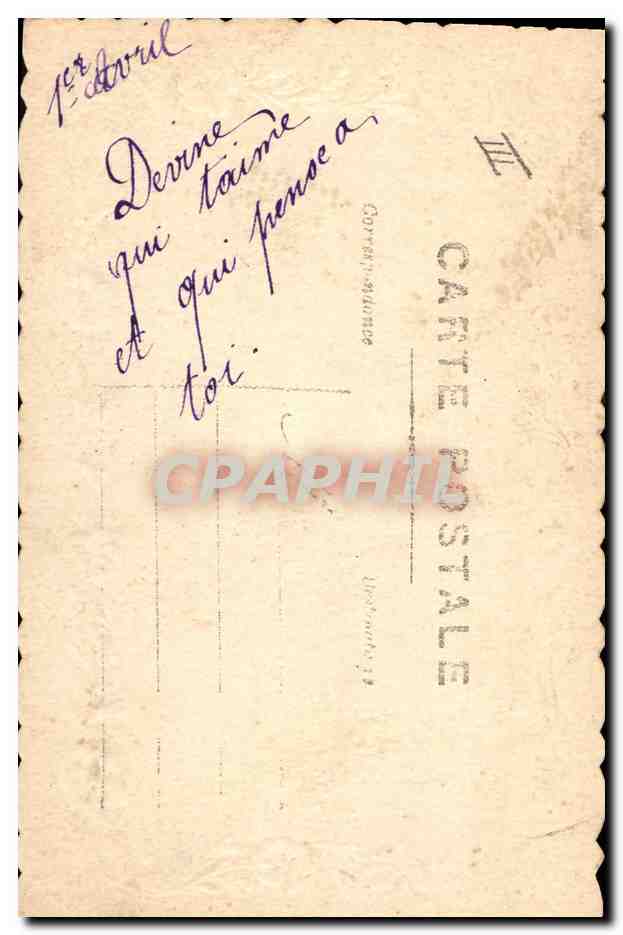 1er Avril
Devine
qui t'aime
et qui pense a
toi.
III
CARTE POSTALE
Correspondance
Destinataire
CPAPHIL